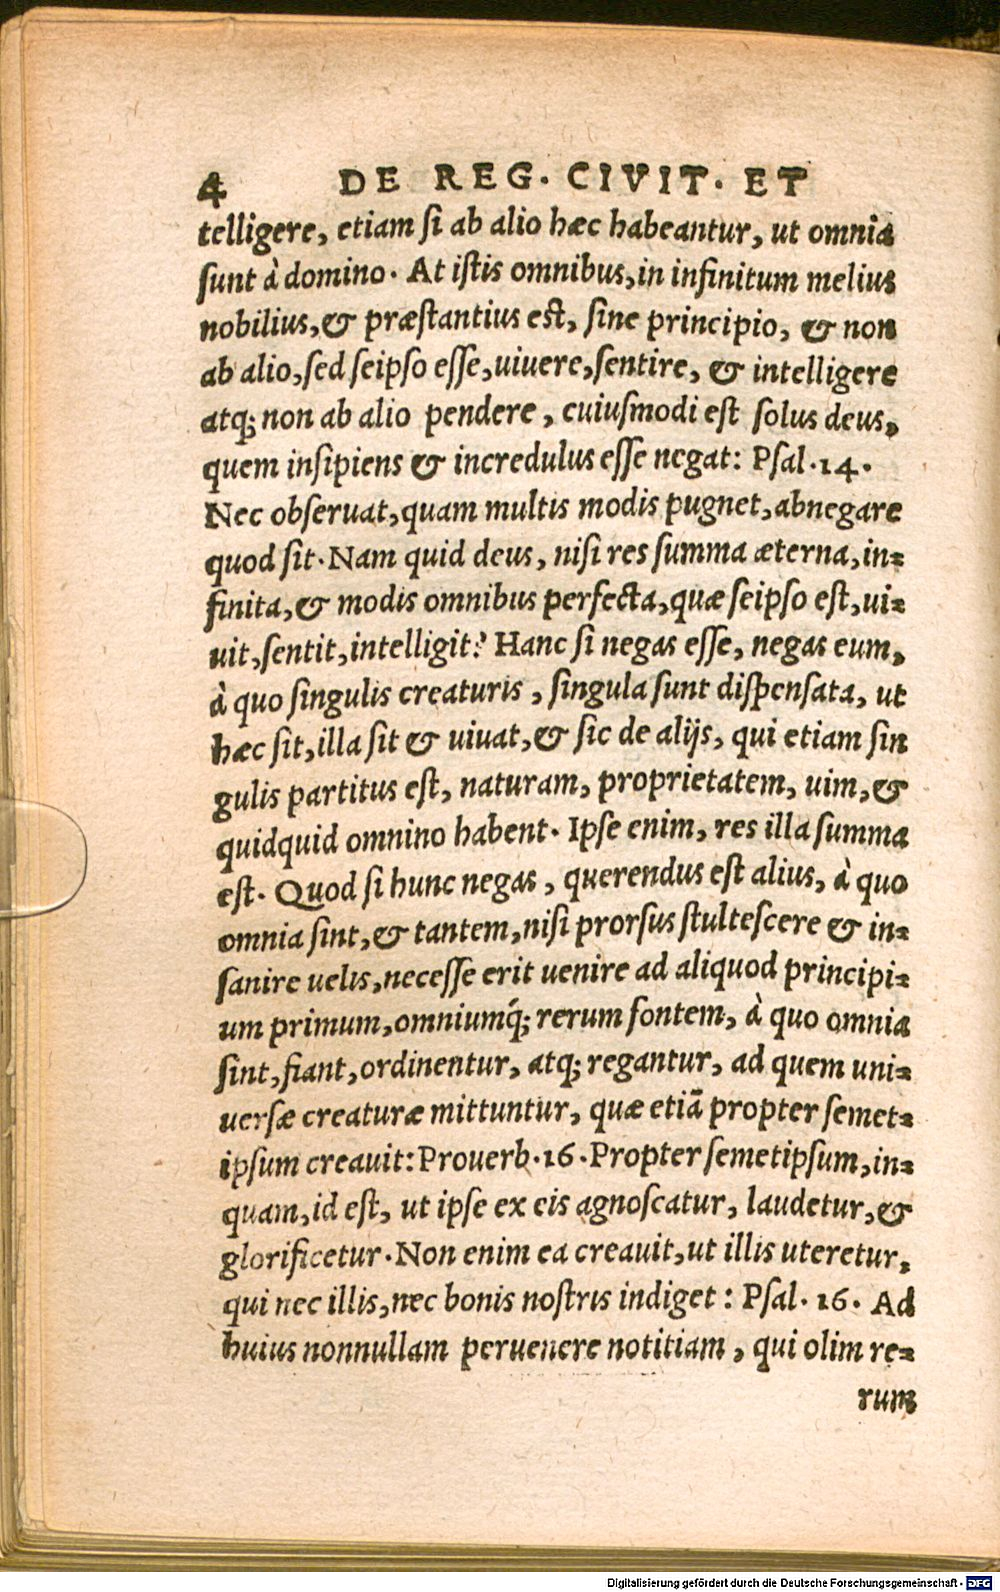 4 DE REG. CIVIT. ET
telligere, etiam si ab alio hæc habeantur, ut omnia
sunt à domino. At istis omnibus, in infinitum melius
nobilius, & præstantius est, sine principio, & non
ab alio, sed seipso esse, uiuere, sentire, & intelligere
atq; non ab alio pendere, cuiusmodi est solus deus,
quem insipiens & incredulus esse negat: Psal. 14.
Nec obseruat, quam multis modis pugnet, abnegare
quod sit. Nam quid deus, nisi res summa æterna, in=
finita, & modis omnibus perfecta, quæ seipso est, ui=
uit, sentit, intelligit? Hanc si negas esse, negas eum,
à quo singulis creaturis, singula sunt dispensata, ut
hæc sit, illa sit & uiuat, & sic de alijs, qui etiam sin
gulis partitus est, naturam, proprietatem, uim, &
quidquid omnino habent. Ipse enim, res illa summa
est. Quod si hunc negas, querendus est alius, à quo
omnia sint, & tantem, nisi prorsus stultescere & in=
sanire uelis, necesse erit uenire ad aliquod principi=
um primum, omniumq́; rerum fontem, à quo omnia
sint, fiant, ordinentur, atq; regantur, ad quem uni=
uersæ creaturæ mittuntur, quæ etiã propter semet=
ipsum creauit: Prouerb. 16. Propter semetipsum, in=
quam, id est, ut ipse ex eis agnoscatur, laudetur, &
glorificetur. Non enim ea creauit, ut illis uteretur,
qui nec illis, nec bonis nostris indiget: Psal. 16. Ad
huius nonnullam peruenere notitiam, qui olim re=
rum
Digitalisierung gefördert durch die Deutsche Forschungsgemeinschaft - DFG